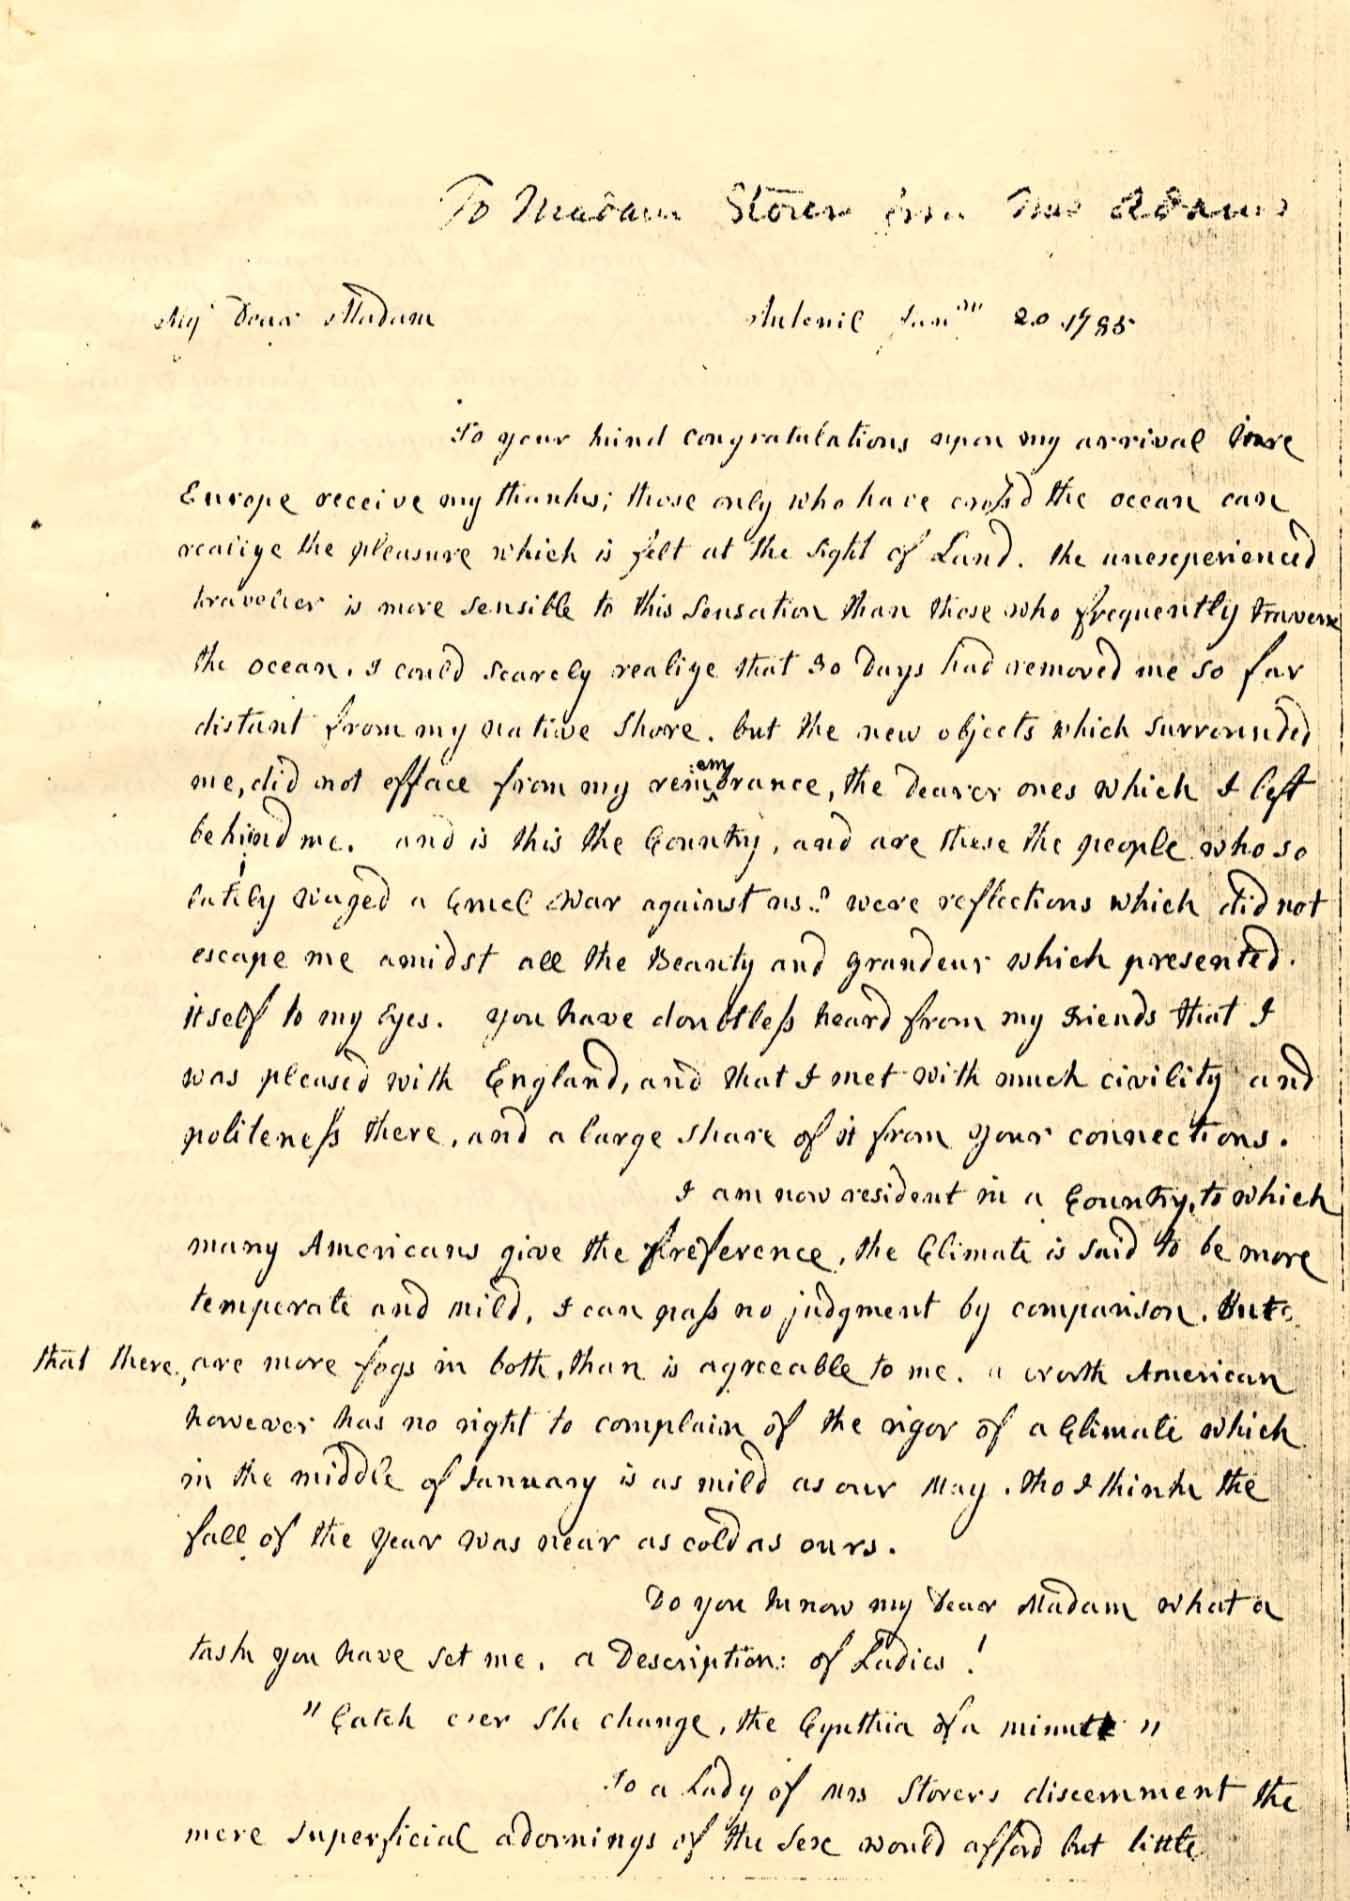 To Madam Storer from Mrs Adams
My Dear Madam Auteuil Janry 20 1785
To your kind congratulations upon my arrival in
Europe receive my thanks; those only who have crossd the ocean can
realize the pleasure which is felt at the sight of Land. the unexperienced
traveller is more sensible to this sensation than those who frequently traverse
the ocean. I could scarcely realize that 30 Days had removed me so far
distant from my native shore. but the new objects which surrounded
me, did not efface from my remembrance, the dearer ones which I left
behind me. and is this the Country, and are these the people who so
lately waged a Cruel War against us? were reflections which did not
escape me amidst all the Beauty and grandeur which presented.
itself to my Eyes. you have doubtless heard from my Friends that I
was pleased with England, and that I met with much civility and
politeness there, and a large share of it from your connections.
I am now resident in a Country, to which
many Americans give the preference, the Climate is said to be more
temperate and mild, I can pass no judgment by comparison. But
that there, are more fogs in both, than is agreeable to me. a North American
however has no right to complain of the rigor of a Climate which
in the middle of January is as mild as our May. tho I think the
fall of the year was near as cold as ours.
Do you know my Dear Madam what a
task you have set me. a Description: of Ladies!
"Catch ever she change, the Cynthia of a minute"
To a Lady of Mrs Storers discernment the
mere superficial adornings of the sex would afford but little